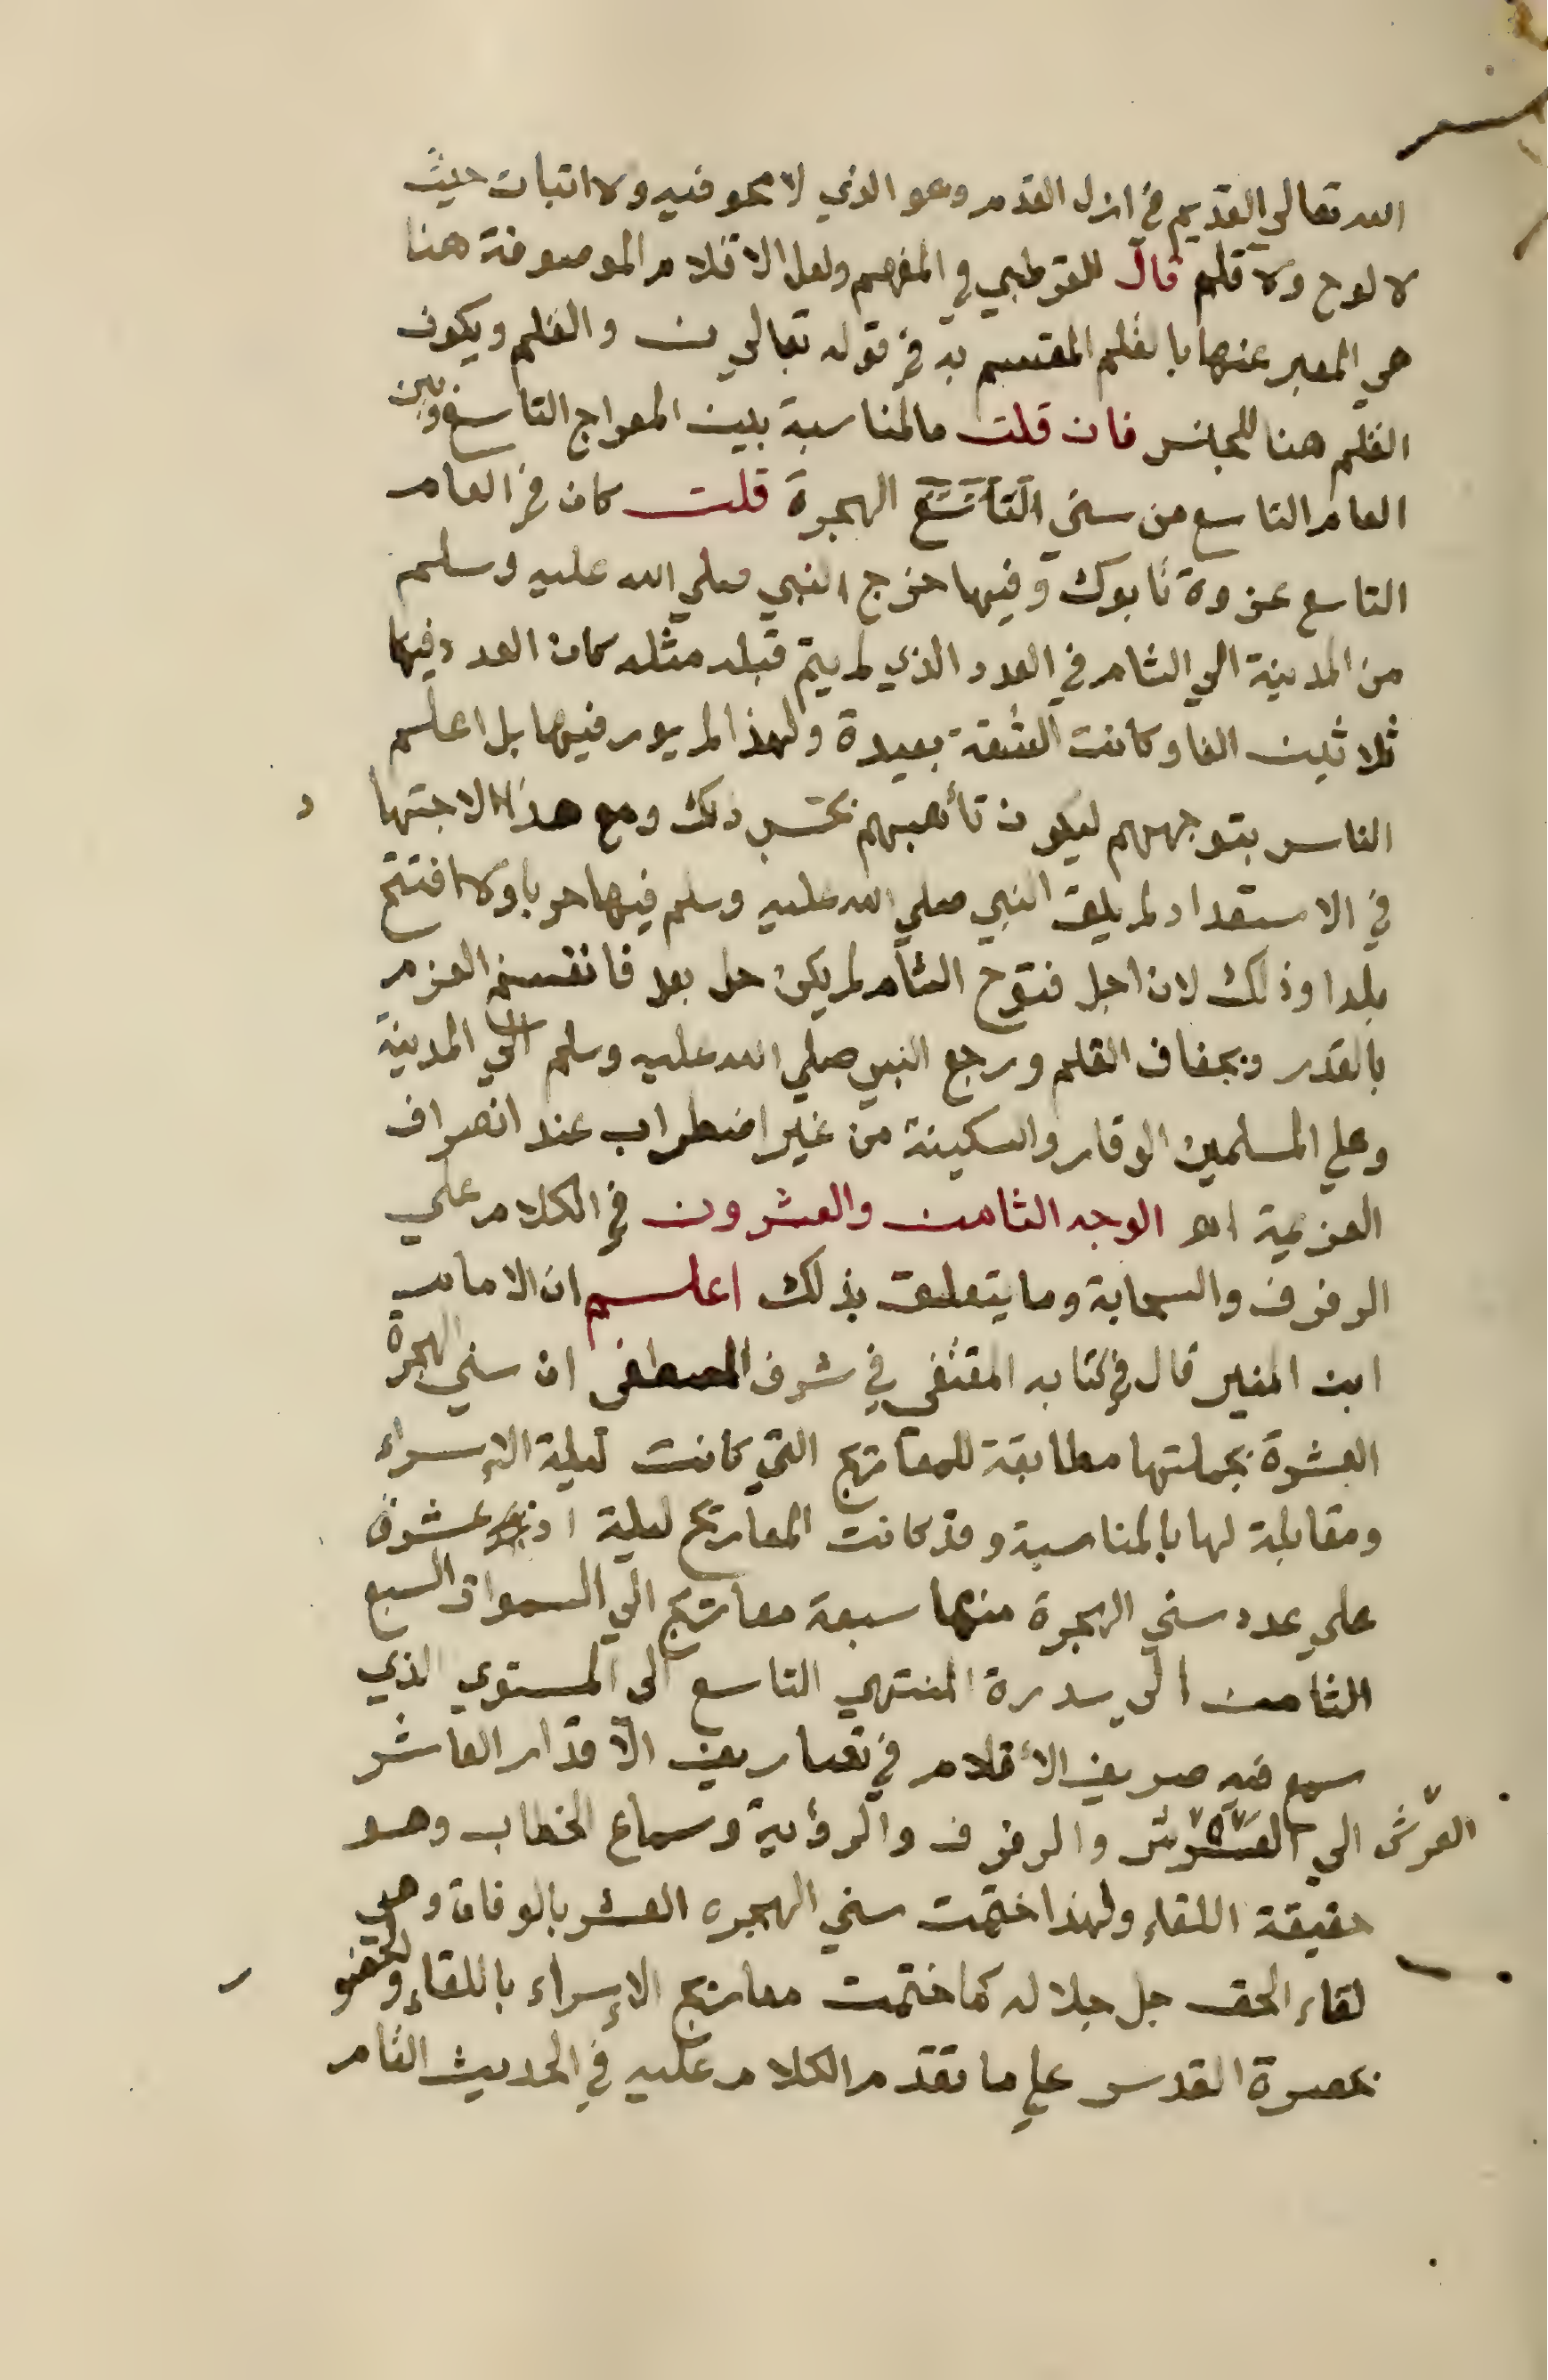 الله تعالى القديم في ازل القدم وهو الذي لا محو فيه ولا اثبات حيث
لا لوح ولا قلم قال القرطبي في المفهم ولعل الاقلام الموصوفة هنا
هي المعبر عنها بالقلم المقسم به في قوله تعالى ن والقلم ويكون
القلم هنا للجنس فان قلت ما المناسبة بين المعراج التاسع وبين
العام التاسع من سني التاسع الهجرة قلت كان في العام
التاسع غزوة تابوك وفيها خرج النبي صلي الله عليه وسلم
من المدينة الي الشام في العدد الذي لم يتم قبله مثله كان العدد فيها
ثلاثين الفا وكانت الشقة بعيدة ولهذا لم يور فيها بل اعلم
الناس بتوجههم ليكون تأهبهم بحسب ذلك ومع هذا الاجتهاد
في الاستعداد لم يلق النبي صلي الله عليه وسلم فيها حربا ولا افتتح
بلدا وذلك لان اجل فتوح الشام لم يكن حل بعد فانفسخ العزم
بالقدر وبجفاف القلم ورجع النبي صلي الله عليه وسلم الي المدينة
وعلي المسلمين الوقار والسكينة من غير اضطراب عند انصراف
العزيمة اهـ الوجه الثامن والعشرون في الكلام علي
الرفرف والسحابة وما يتعلق بذلك اعلم ان الامام
ابن المنير قال في كتابه المقتفى في شرف المصطفى ان سني الهجرة
العشرة بجملتها مطابقة للمعاريج التي كانت ليلة الإسراء
ومقابلة لها بالمناسبة وقد كانت المعاريج ليلة اذ عشرة
علي عدد سني الهجرة منها سبعة معاريج الي السموات السبع
الثامن الى سدرة المنتهي التاسع الى المستوي الذي
سمع فيه صريف الأقلام في تصاريف الأقدار العاشر
العرش الي العرش والرفرف والرؤية وسماع الخطاب وهو
حقيقة اللقاء ولهذا ختمت سني الهجره العشر بالوفاة وهي
لقاء الحق جل جلاله كما ختمت معاريج الإسراء باللقاء والحضور
بحضرة القدس علي ما تقدم الكلام عليه في الحديث القام